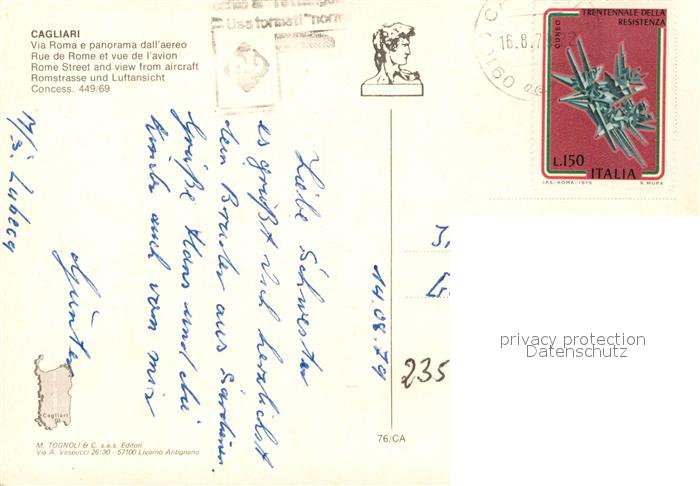 CAGLIARI
Via Roma e panorama dall'aereo
Rue de Rome et vue de l'avion
Rome Street and view from aircraft
Romstrasse und Luftansicht
Concess. 449/69
Usa formati "norm
16.8.7
CUNEO
TRENTENNALE DELLA
RESISTENZA
L.150
ITALIA
I.P.S.-ROMA-1975
R. MURA
Liebe Schwester
es grüßt Dich herzlichst
dein Bruder aus Sardinien.
Grüße Hans und die
Kinder auch von mir
Günter
14.08.79
235
privacy protection
Datenschutz
Cagliari
M. TOGNOLI & C. s.a.s. Editori
Via A. Vespucci 26/30 - 57100 Livorno Antignano
76/CA